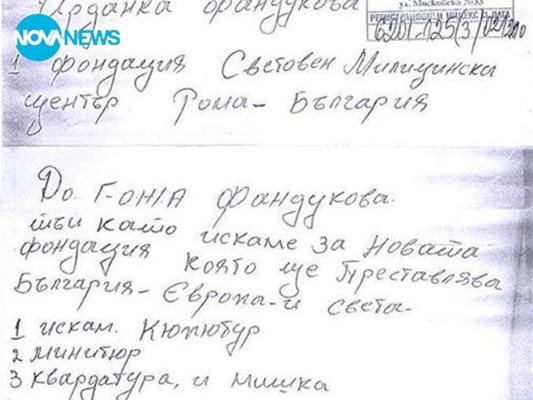 NOVANEWS
Ирданка Фандукова
ул. Московска №33
РЕГИСТРАЦИОНЕН ИНДЕКС И ДАТА
1 фондация Световен Милицинска
център Рома - България
До Г-ОЖА Фандукова.
тъи като искаме за новата
фондация която ще Преставлява
България - Европа - и света -
1 искам. Кюпютур
2 минитюр
3 квардатура, и мишка